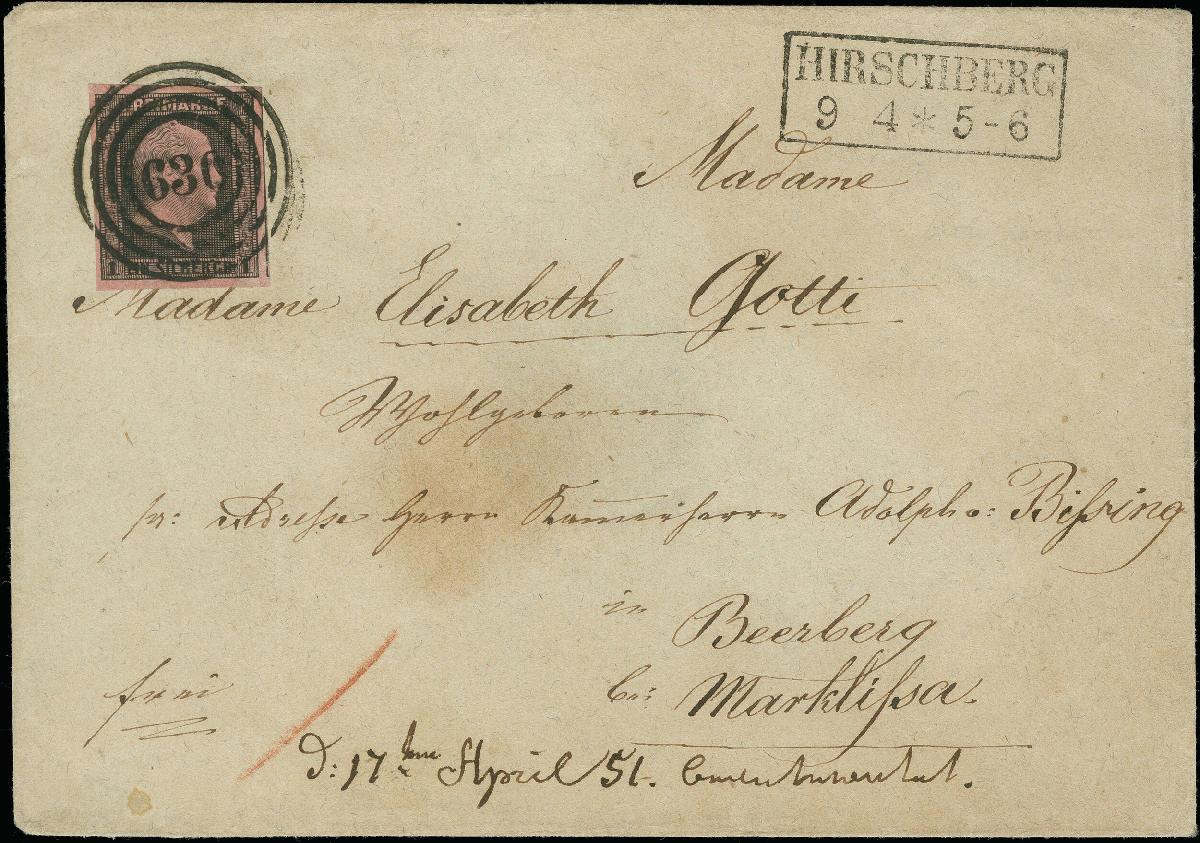 HIRSCHBERG
9 4 * 5-6
FREIMARKE
630
1 EIN SILBERGR. 1
Madame
Madame Elisabeth Gotti
Wohlgeboren
pr: Adresse Herrn Kammerherrn Adolph v: Bißsing
in Beerberg
bei Marklißsa.
frei
d: 17ten April 51. beantwortet.